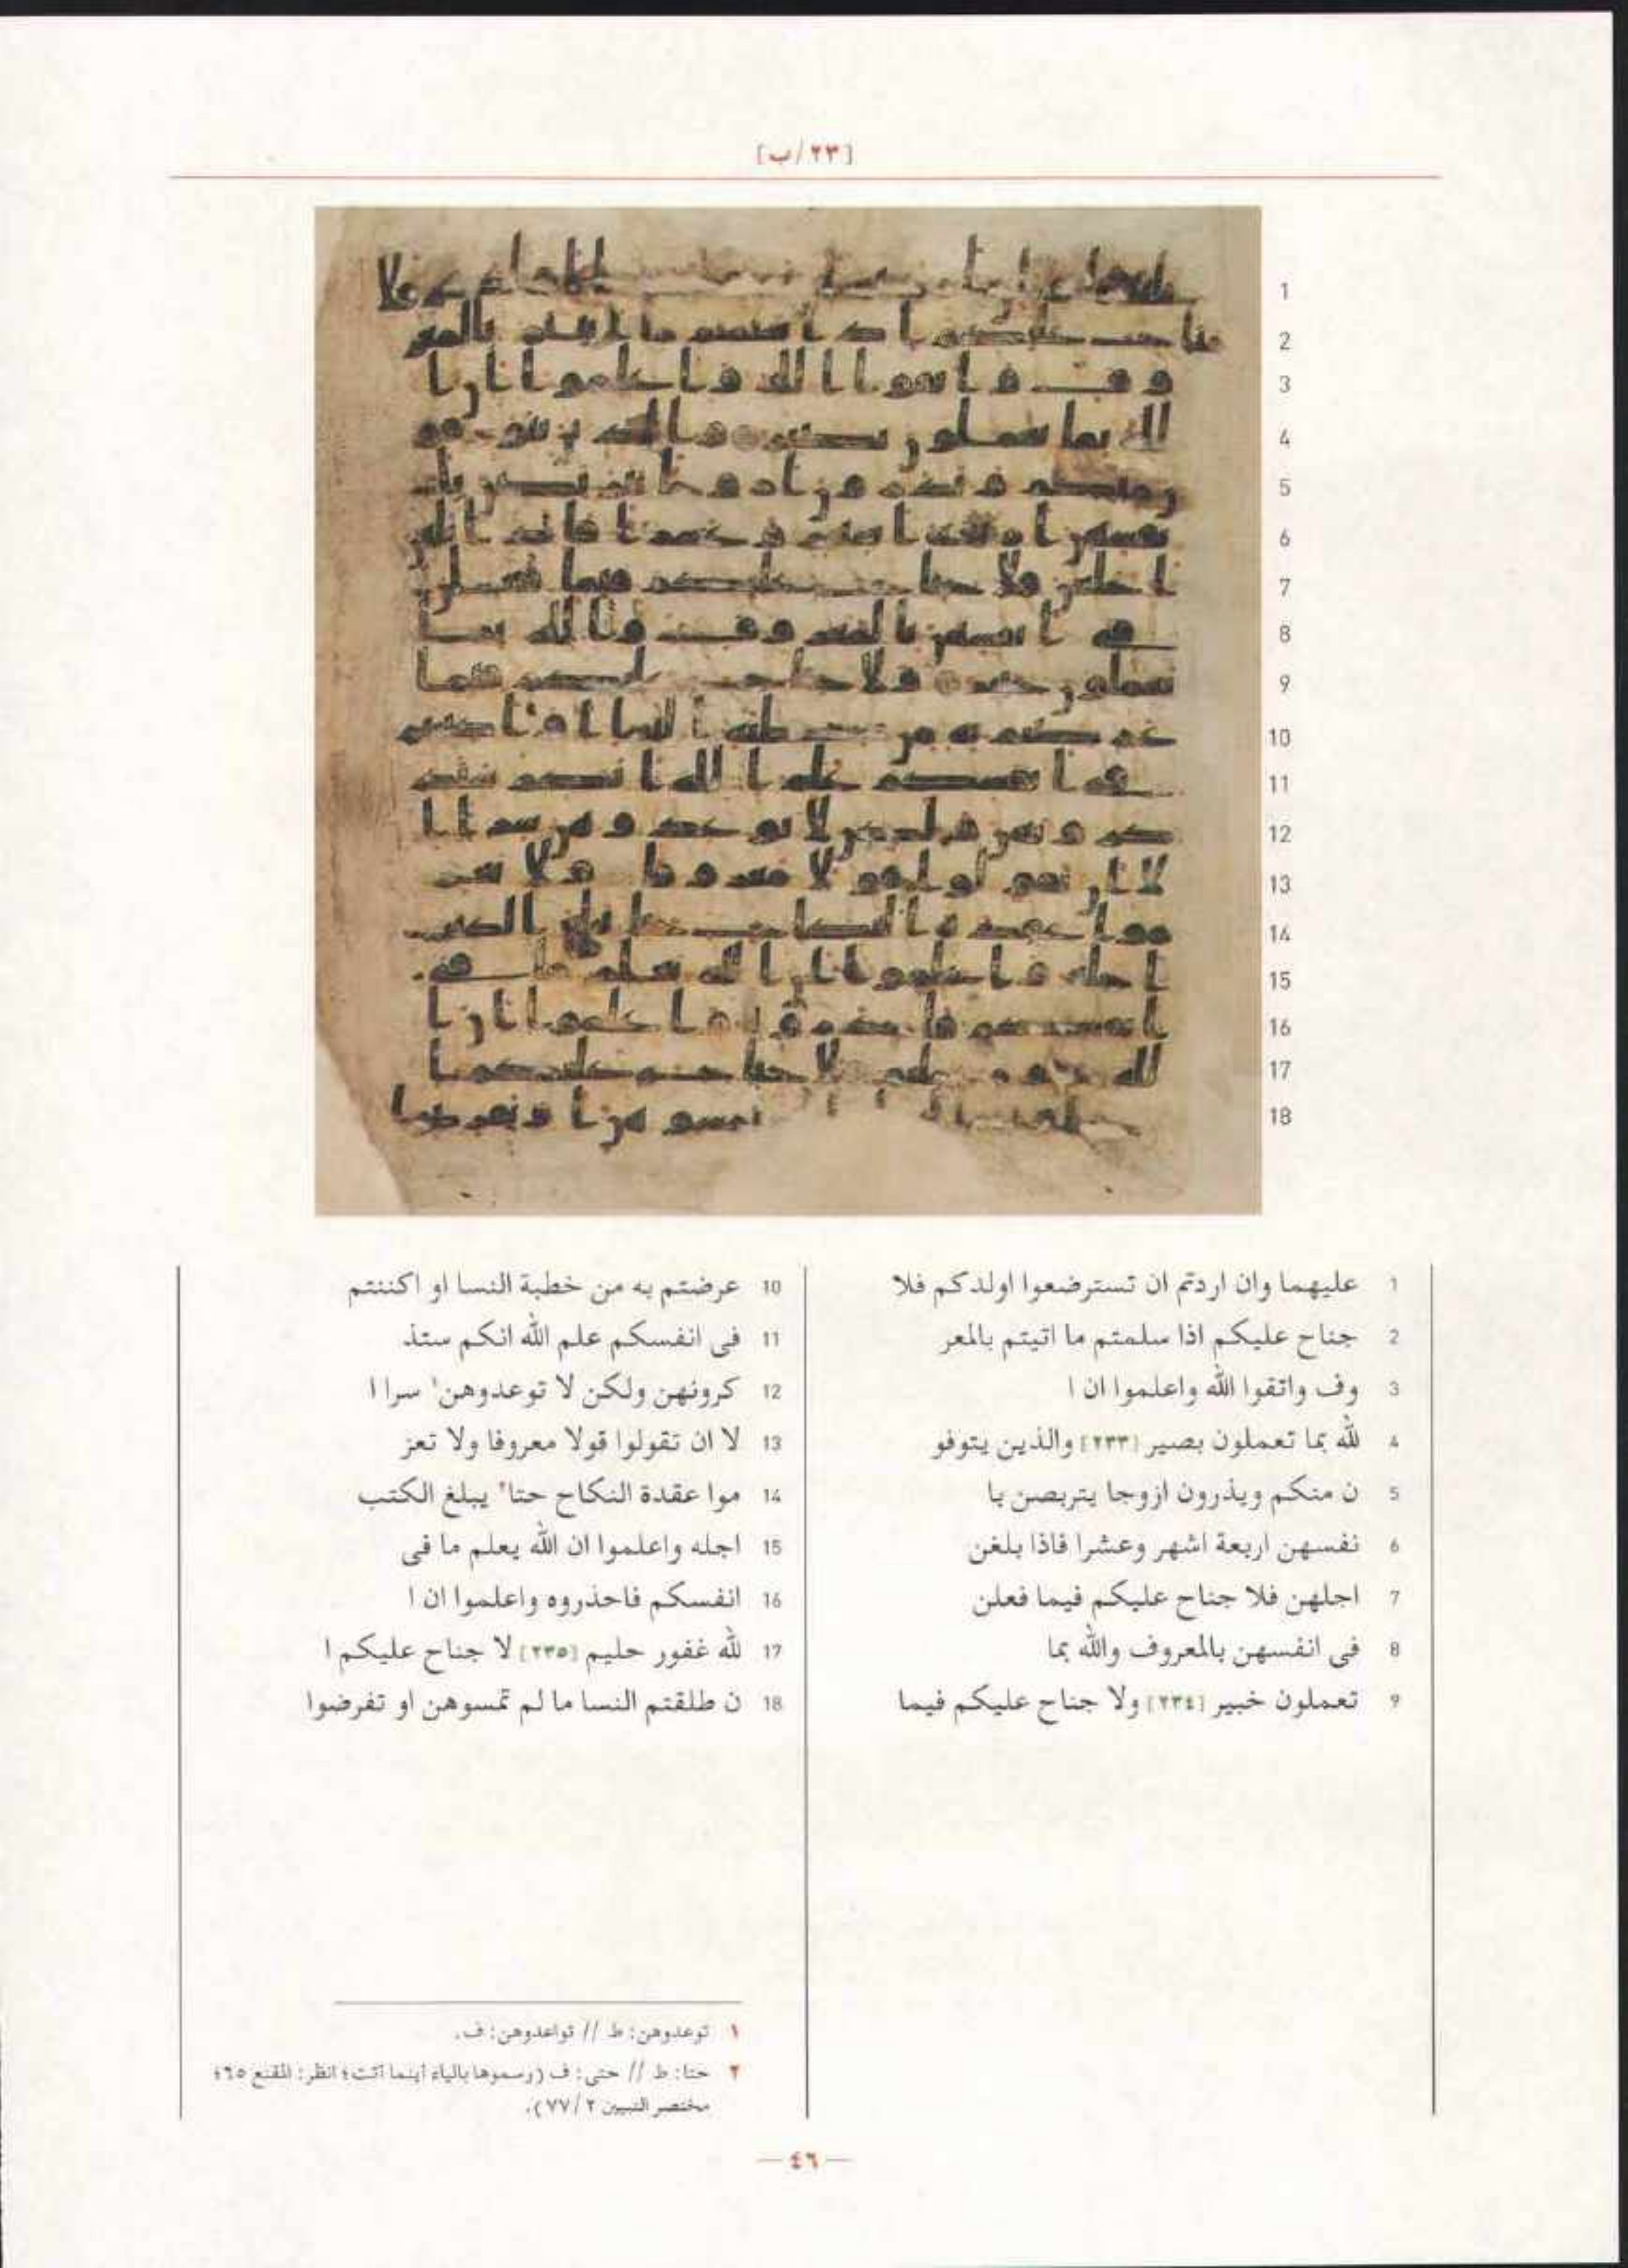 [٢٣/ب]
1 عليهما وان اردتم ان تسترضعوا اولدكم فلا
2 جناح عليكم اذا سلمتم ما اتيتم بالمعر
3 وف واتقوا الله واعلموا ان ا
4 لله بما تعملون بصير [٢٣٣] والذين يتوفو
5 ن منكم ويذرون ازوجا يتربصن با
6 نفسهن اربعة اشهر وعشرا فاذا بلغن
7 اجلهن فلا جناح عليكم فيما فعلن
8 فى انفسهن بالمعروف والله بما
9 تعملون خبير [٢٣٤] ولا جناح عليكم فيما
10 عرضتم به من خطبة النسا او اكننتم
11 فى انفسكم علم الله انكم ستذ
12 كرونهن ولكن لا توعدوهن١ سرا ا
13 لا ان تقولوا قولا معروفا ولا تعز
14 موا عقدة النكاح حتا٢ يبلغ الكتب
15 اجله واعلموا ان الله يعلم ما فى
16 انفسكم فاحذروه واعلموا ان ا
17 لله غفور حليم [٢٣٥] لا جناح عليكم ا
18 ن طلقتم النسا ما لم تمسوهن او تفرضوا
١ توعدوهن: ط // تواعدوهن: ف.
٢ حتا: ط // حتى: ف (رسموها بالياء أينما أتت؛ انظر: المقنع ٦٥؛
مختصر التبيين ٢/ ٧٧).
— ٤٦ —